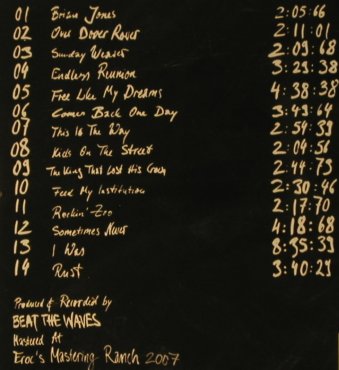 01 Brian Jones 2:05:66
02 Over 2:11:01
03 Sunday Weaver 2:09:68
04 Endless Reunion 3:29:38
05 Free Like My Dreams 4:38:38
06 Comes Back One Day 3:49:64
07 This Is The Way 2:54:39
08 Kids On The Street 2:04:56
09 The King That Lost His Crown 2:44:73
10 Feed My Institution 2:30:46
11 Rockin' Zro 2:17:70
12 Sometimes Never 4:18:68
13 I Was 8:35:39
14 Rust 3:40:29
Produced & Recorded by
BEAT THE WAVES
Mastered At
Eroc's Mastering Ranch 2007